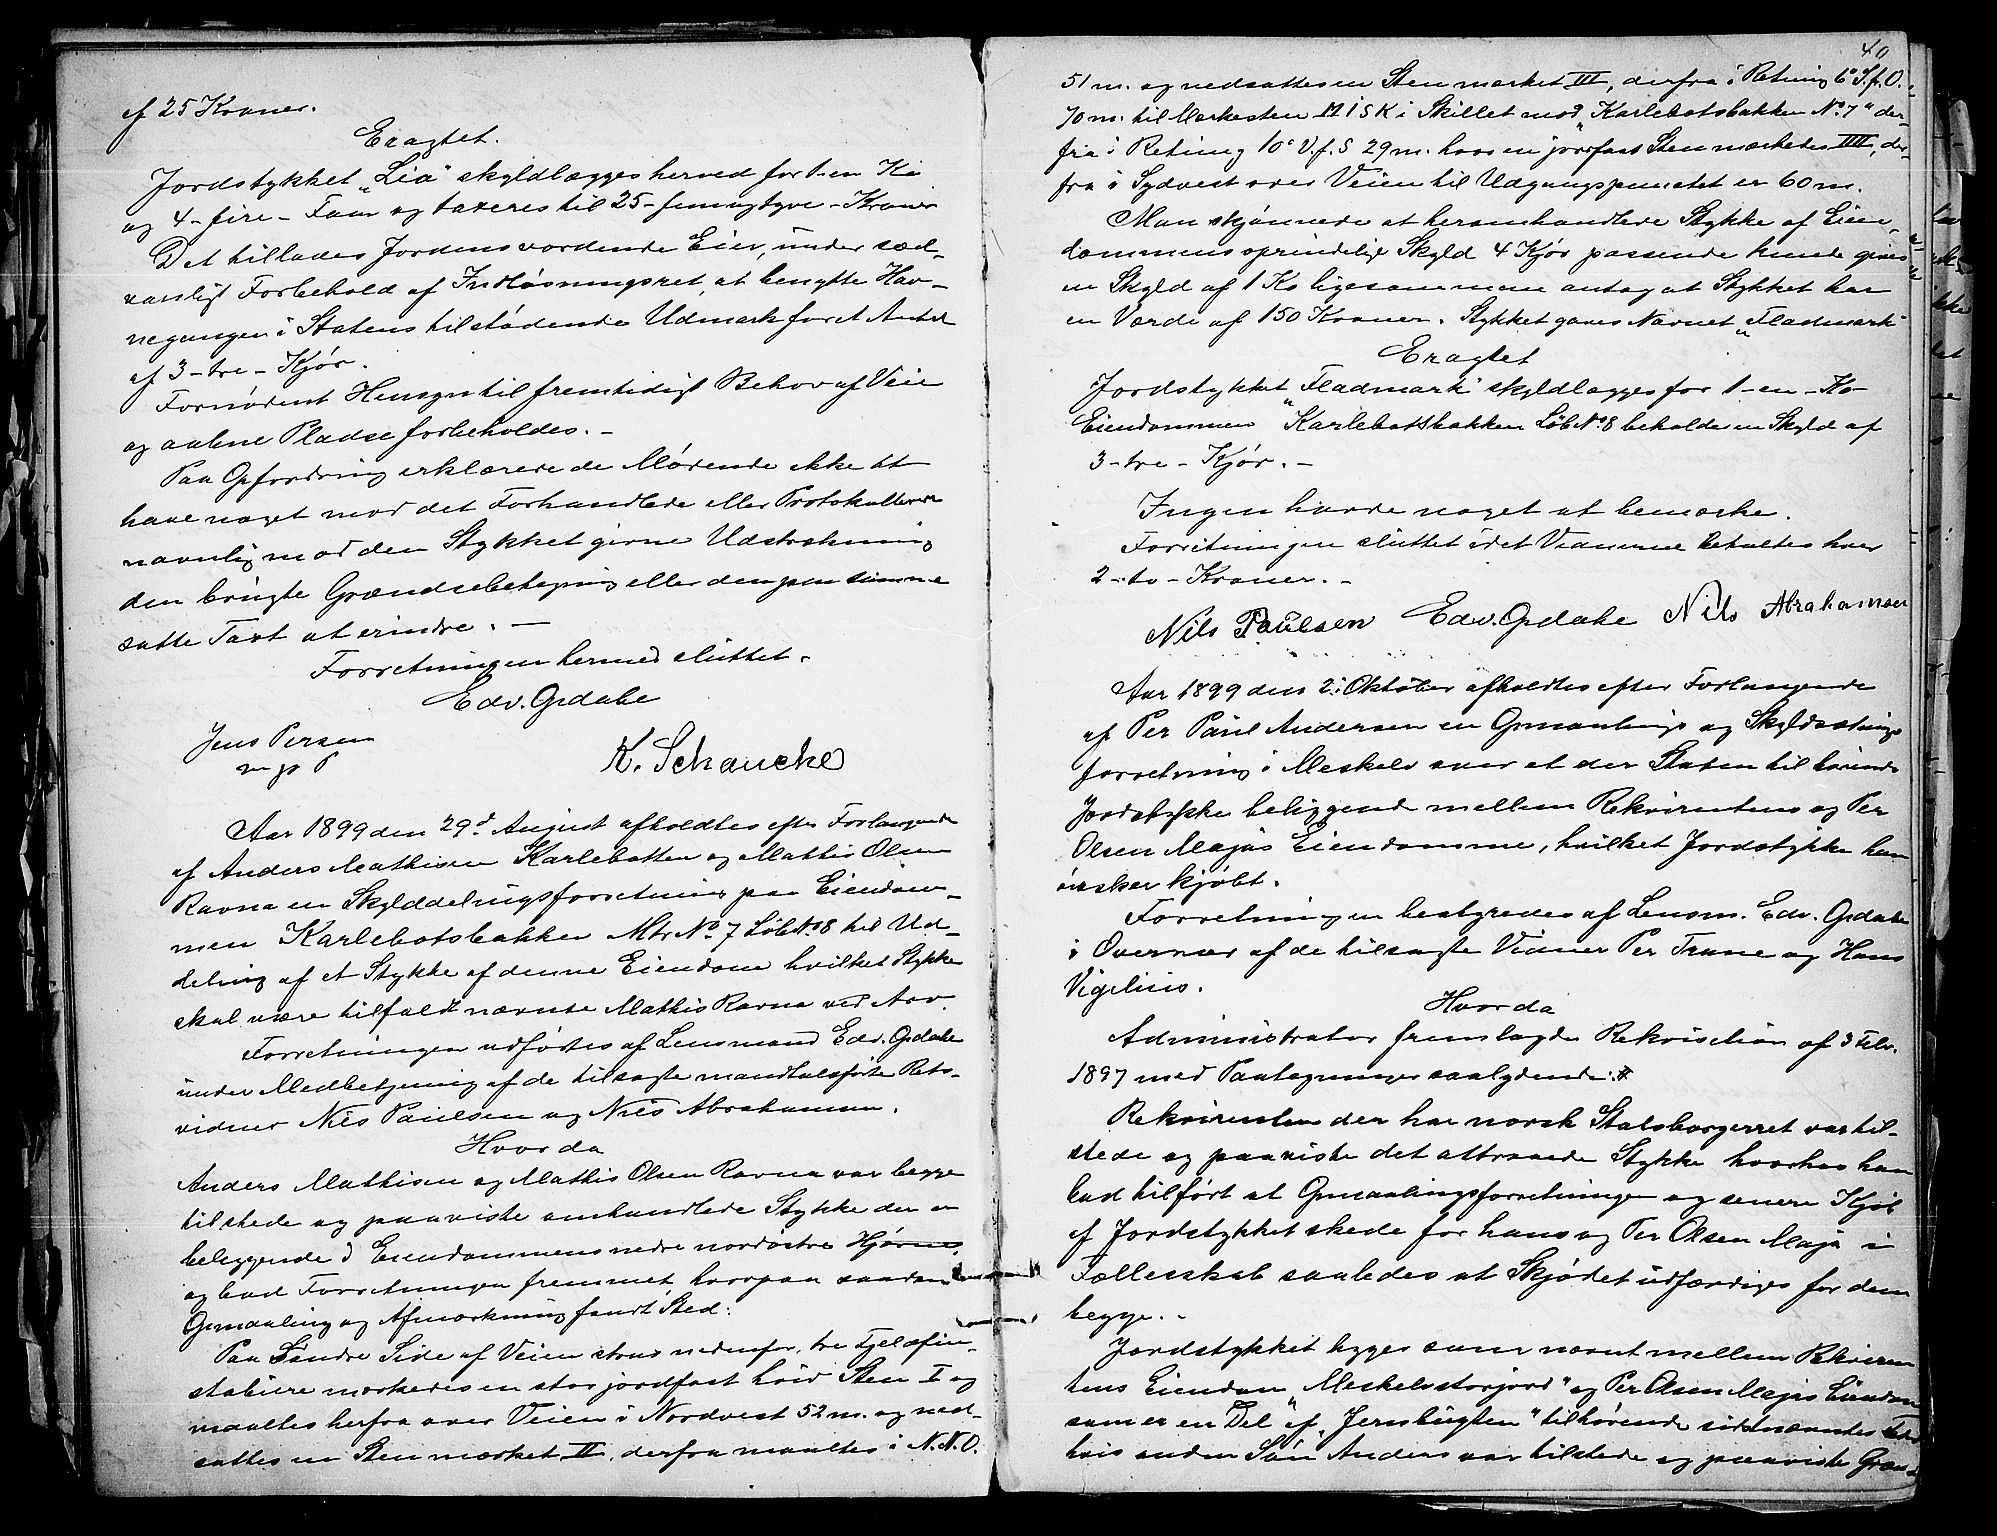 af 25 Kroner.
Eragtet.
Jordstykket „Lia" skyldlægges herved for 1-en Ko
og 4-fire-Faar og taxeres til 25-femogtyve-Kroner
Det tillades Jordens vordende Eier, under sæd-
vanligt Forbehold af Indløsningsret, at benytte Hav-
negangen i Statens tilstødende Udmark for et Antal
af 3-tre-Kjør.
Fornødent Hensyn til fremtidigt Behov af Veie
og aabne Pladse forbeholdes.-
Paa Opfordring erklærede de Mødende ikke at
have noget mod det Forhandlede eller Protokollerede
navnlig mod den Stykket givne Udstrækning
den brugte Grændsebetegning eller den paa samme
satte Taxt at erindre.-
Forretningen hermed sluttet.
Edv. Opdahl
Jens Persen
m p P
K. Schancke
Aar 1899 den 29d August afholdtes efter Forlangende
af Anders Mathisen Karlebotten og Mathis Olsen
Ravna en Skylddelingsforretning paa Eiendom-
men Karlebotsbakken Mtr No. 7 Løb No 8 til Ud-
deling af et Stykke af denne Eiendom hvilket Stykke
skal være tilfaldt nævnte Mathis Ravna ved Arv.
Forretningen udførtes af Lensmand Edv. Opdahl
under Medbetjening af de tilsagte mandtalsførte Rets-
vidner Nils Paulsen og Nils Abrahamsen.
Hvorda
Anders Mathisen og Mathis Olsen Ravna var begge
tilstede og paaviste omhandlede Stykke der er
beliggende i Eiendommens nedre nordøstre Hjørne,
og bad Forretningen fremmet, hvorpaa saadan
Opmaaling og Afmærkning fandt Sted:
Paa Søndre Side af Veien strax nedenfor tre Fjeldfin-
stabure mærkedes en stor jordfast hvid Sten I og
maaltes herfra over Veien i Nordvest 52 m. og ned-
sattes en Sten mærket II, derfra maaltes i N.N.O.
40
51 m. og nedsattes en Sten mærket III, derfra i Retning 6° S.f.O.
70 m. til Merkesten M i S K i Skillet mod „Karlebotsbakken No 7" der-
fra i Retning 10° V.f.S 29 m. hvor en jordfast Sten mærkedes IIII, der-
fra i Sydvest over Veien til Udgangspunktet er 60 m.
Man skjønnede at heromhandlede Stykke af Eien-
dommens oprindelige Skyld 4 Kjør passende kunde gives
en Skyld af 1 Ko ligesom man antog at Stykket har
en Værdi af 150 Kroner. Stykket gaves Navnet „Fladmark"
Eragtet
Jordstykket „Fladmark" skyldlægges for 1-en-Ko
Eiendommen Karlebotsbakken Løb No 8 beholder en Skyld af
3-tre-Kjør.-
Ingen havde noget at bemærke.
Forretningen sluttet idet Vidnerne betaltes hver
2-to-Kroner.-
Nils Paulsen Edv. Opdahl Nils Abrahamsen
Aar 1899 den 2. Oktober afholdtes efter Forlangende
af Per Paul Andersen en Opmaalings og Skyldsætnings
forretning i Meskelv over et der Staten tilhørende
Jordstykke beliggende mellem Rekvirentens og Per
Olsen Majas Eiendomme, hvilket Jordstykke han
ønsker kjøbt.
Forretningen bestyredes af Lensm. Edv. Opdahl
i Overvær af de tilsagte Vidner Per Trane og Hans
Vigelius.
Hvorda
Administrator fremlagde Rekvisition af 3 Febr.
1897 med Paategninger saalydende:
Rekvirenten der har norsk Statsborgerret var til-
stede og paaviste det attraaede Stykke hvorhos han
bad tilført at Opmaalingsforretningen og senere Kjøb
af Jordstykket skede for hans og Per Olsen Maja i
Fællesskab saaledes at Skjødet udfærdiges for dem
begge.-
Jordstykket ligger som nævnt mellem Rekviren
tens Eiendom „Meskelvstorjord" og Per Olsen Majas Eiendom
som er en Del af „Jernbugten" tilhørende sidstnævntes Fader
hvis anden Søn Anders var tilstede og paaviste Græn-